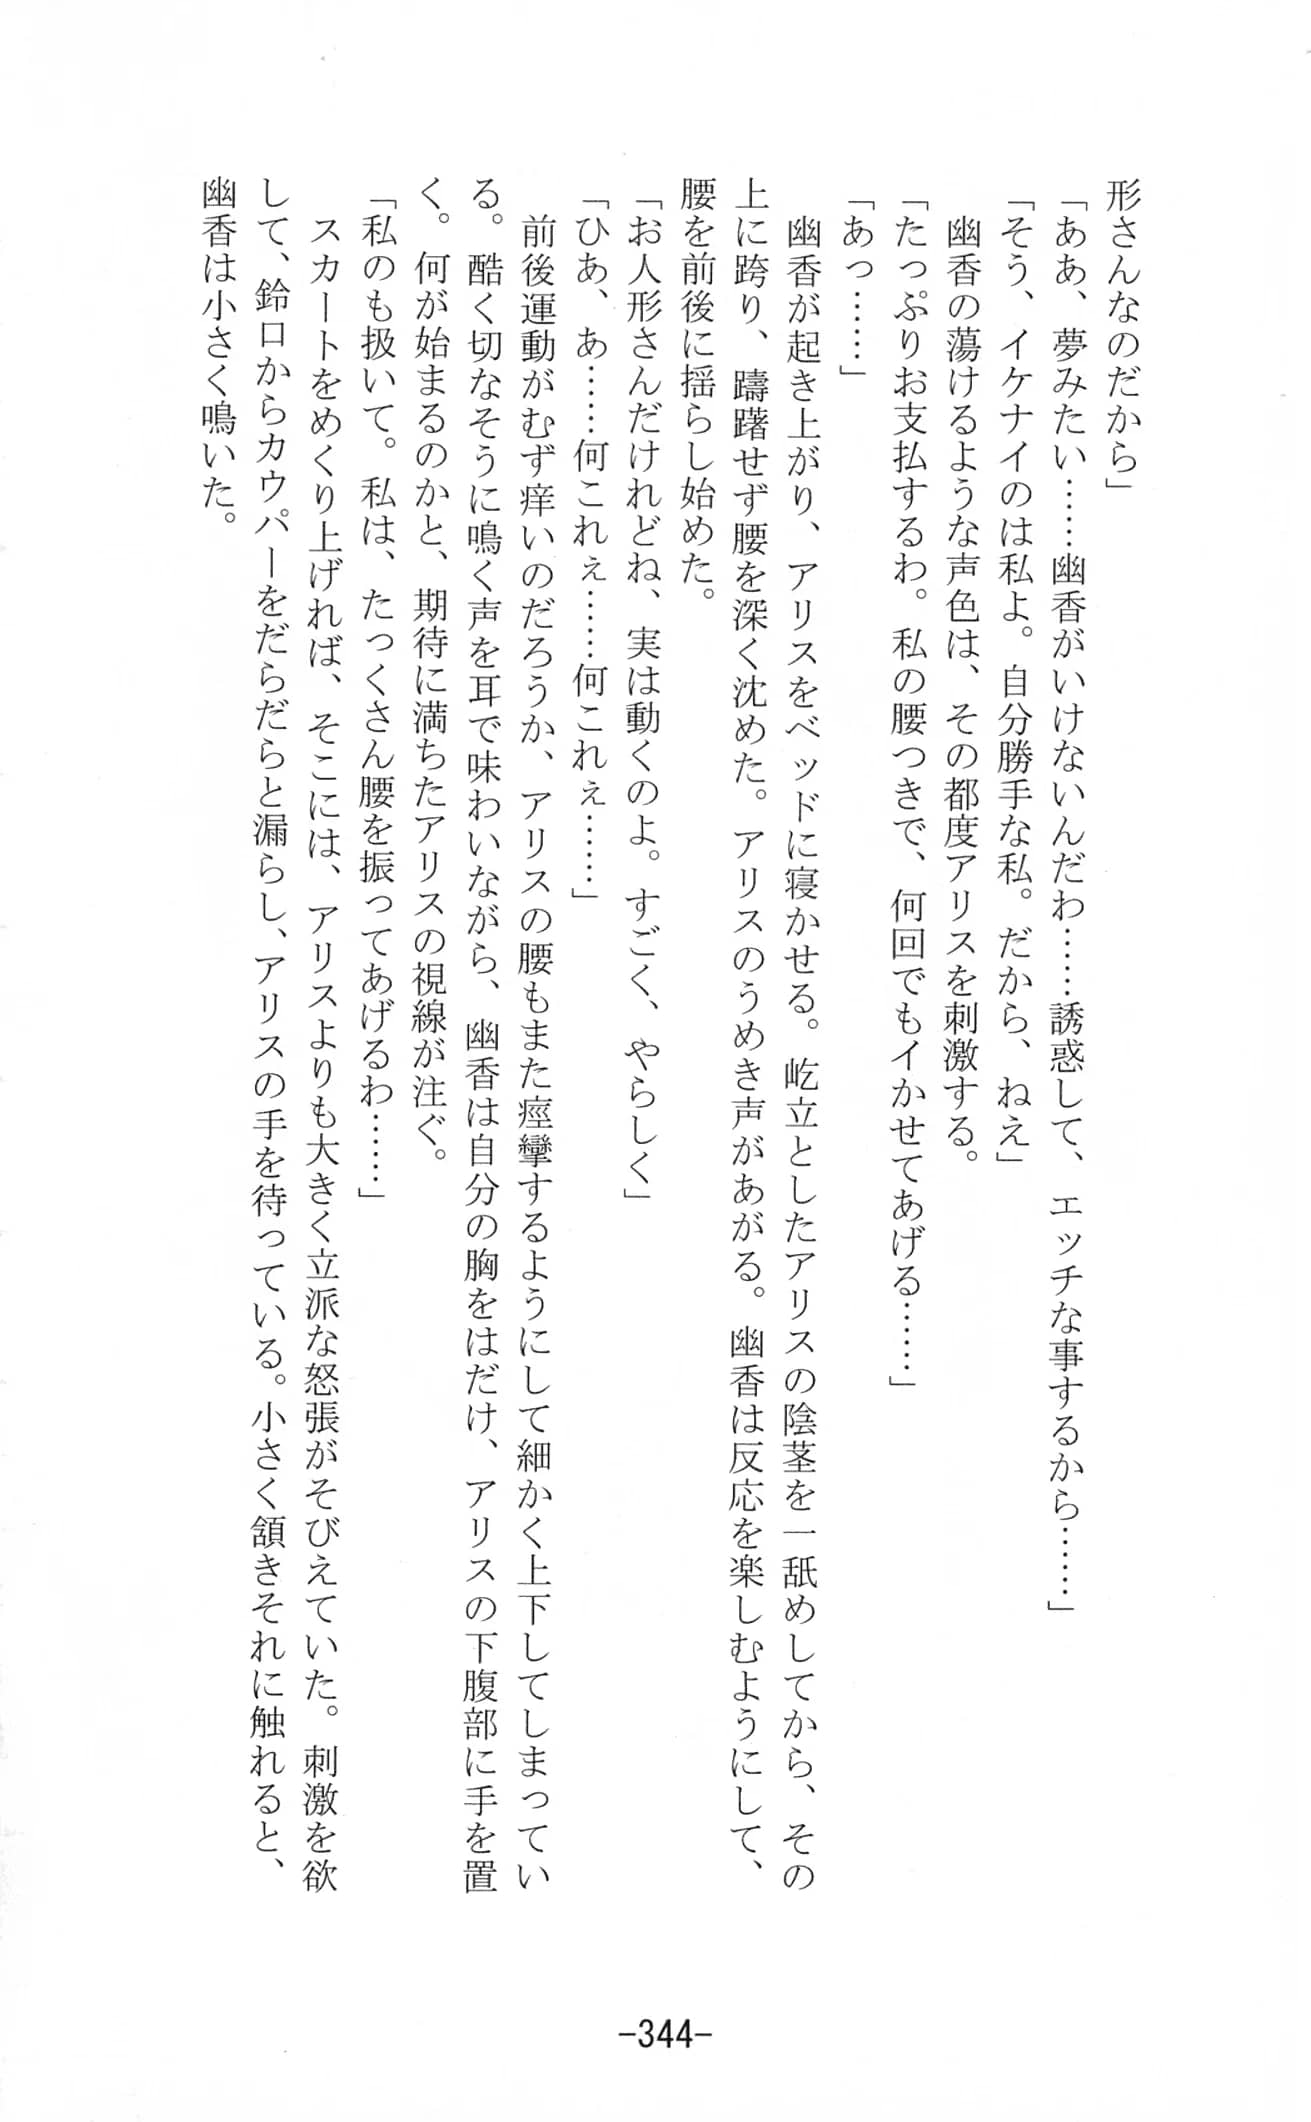 形さんなのだから」
「ああ、夢みたい……幽香がいけないんだわ……誘惑して、エッチな事するから……」
「そう、イケナイのは私よ。自分勝手な私。だから、ねえ」
幽香の蕩けるような声色は、その都度アリスを刺激する。
「たっぷりお支払するわ。私の腰つきで、何回でもイかせてあげる……」
「あっ……」
幽香が起き上がり、アリスをベッドに寝かせる。屹立としたアリスの陰茎を一舐めしてから、その
上に跨り、躊躇せず腰を深く沈めた。アリスのうめき声があがる。幽香は反応を楽しむようにして、
腰を前後に揺らし始めた。
「お人形さんだけれどね、実は動くのよ。すごく、やらしく」
「ひあ、あ……何これぇ……何これぇ……」
前後運動がむず痒いのだろうか、アリスの腰もまた痙攣するようにして細かく上下してしまってい
る。酷く切なそうに鳴く声を耳で味わいながら、幽香は自分の胸をはだけ、アリスの下腹部に手を置
く。何が始まるのかと、期待に満ちたアリスの視線が注ぐ。
「私のも扱いて。私は、たっくさん腰を振ってあげるわ……」
スカートをめくり上げれば、そこには、アリスよりも大きく立派な怒張がそびえていた。刺激を欲
して、鈴口からカウパーをだらだらと漏らし、アリスの手を待っている。小さく頷きそれに触れると、
幽香は小さく鳴いた。
-344-